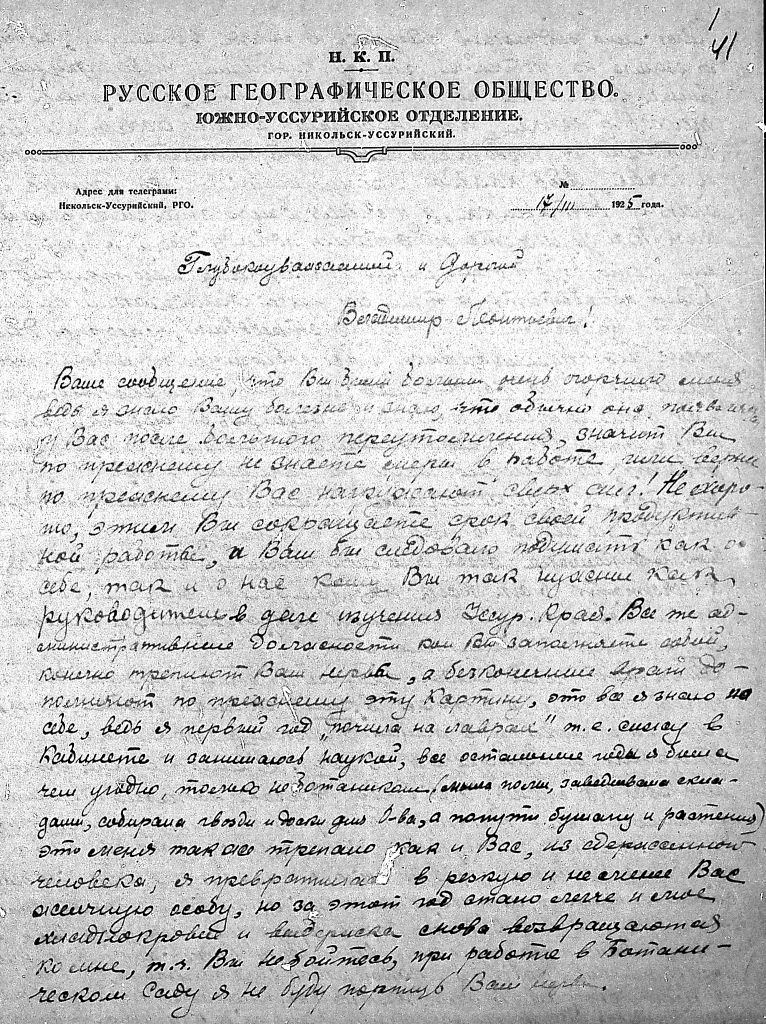 1
41
Н. К. П.
РУССКОЕ ГЕОГРАФИЧЕСКОЕ ОБЩЕСТВО.
ЮЖНО-УССУРИЙСКОЕ ОТДЕЛЕНИЕ.
ГОР. НИКОЛЬСК-УССУРИЙСКИЙ.
Адрес для телеграмм:
Никольск-Уссурийский, РГО.
№
17/III 1925 года.
Глубокоуважаемый и Дорогой
Владимир Леонтьевич!
Ваше сообщение, что Вы были больны очень огорчило меня
ведь я знаю Вашу болезнь и знаю, что обычно она появилась
у Вас после большого переутомления, значит Вы
по прежнему не знаете меры в работе, или вернее
по прежнему Вас нагружают сверх сил! Не хоро-
шо, этим Вы сокращаете срок своей продуктив-
ной работы, а Вам бы следовало подумать как о
себе, так и о нас кому Вы так нужны как
руководитель в деле изучения Уссур. Края. Все же ад-
министративные должности кои Вы заполняете собой,
конечно треплют Ваши нервы, а бесконечные врали до-
полняют по прежнему эту картину, это все я знаю по
себе, ведь я первый год „почила на лаврах" т.е. сижу в
Кабинете и занимаюсь наукой, все остальные года я была
чем угодно, только не ботаником (мыла полы, заведывала скла-
дами, собирала гвозди и доски для О-ва, а попутно бумагу и растения)
это меня также трепало как и Вас, из сдержанной
человека, я превратилась в резкую и не менее Вас
желчную особу, но за этот год стало легче и мое
хладнокровие и выдержка снова возвращаются
ко мне, т.ч. Вы не бойтесь, при работе в Ботани-
ческом Саду я не буду портить Вам нервы.